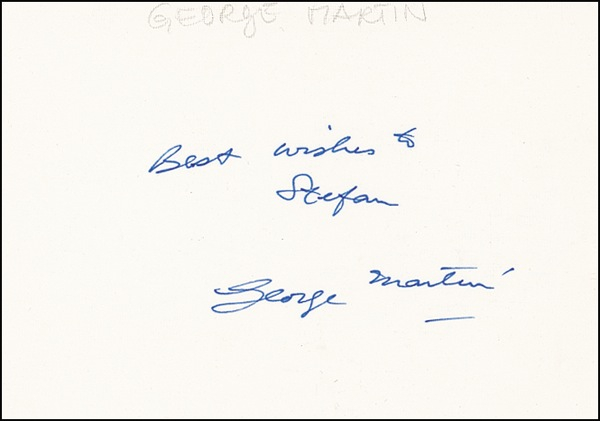 GEORGE MARTIN
Best wishes to
Stefan
George Martin